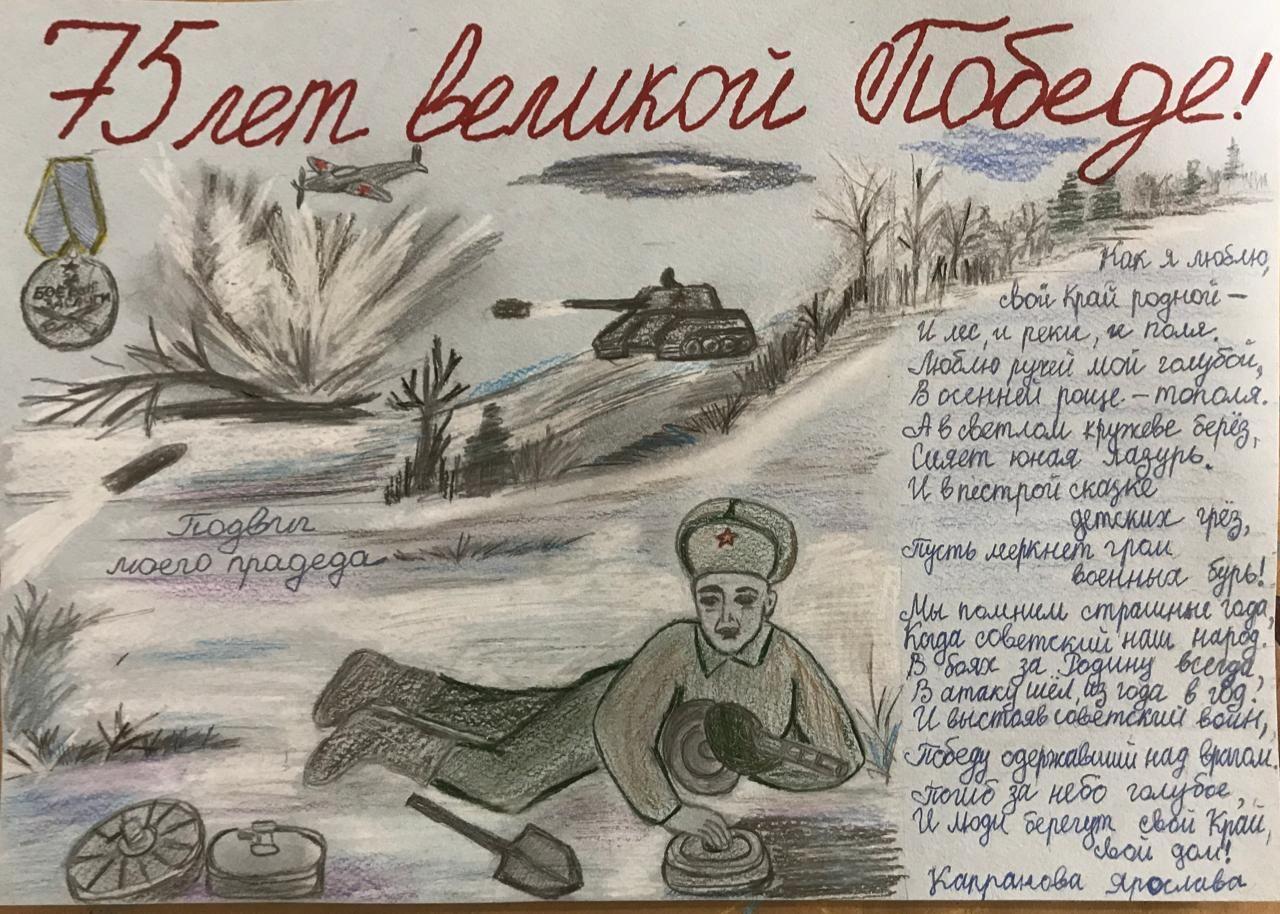 75 лет великой Победе!
БОЕВЫЕ
ЗАСЛУГИ
Подвиг
моего прадеда
Как я люблю,
свой Край родной –
И лес, и реки, и поля.
Люблю ручей мой голубой,
В осенней роще – тополя.
А в светлом кружеве берёз,
Сияет юная лазурь.
И в пёстрой сказке
детских грёз,
Пусть меркнет гром
военных бурь!
Мы помним страшные года,
Когда советский наш народ.
В боях за Родину всегда,
В атаку шёл из года в год!
И выстояв советский воин,
Победу одержавший над врагом.
Погиб за небо голубое,
И люди берегут свой Край,
свой дом!
Капранова Ярослава